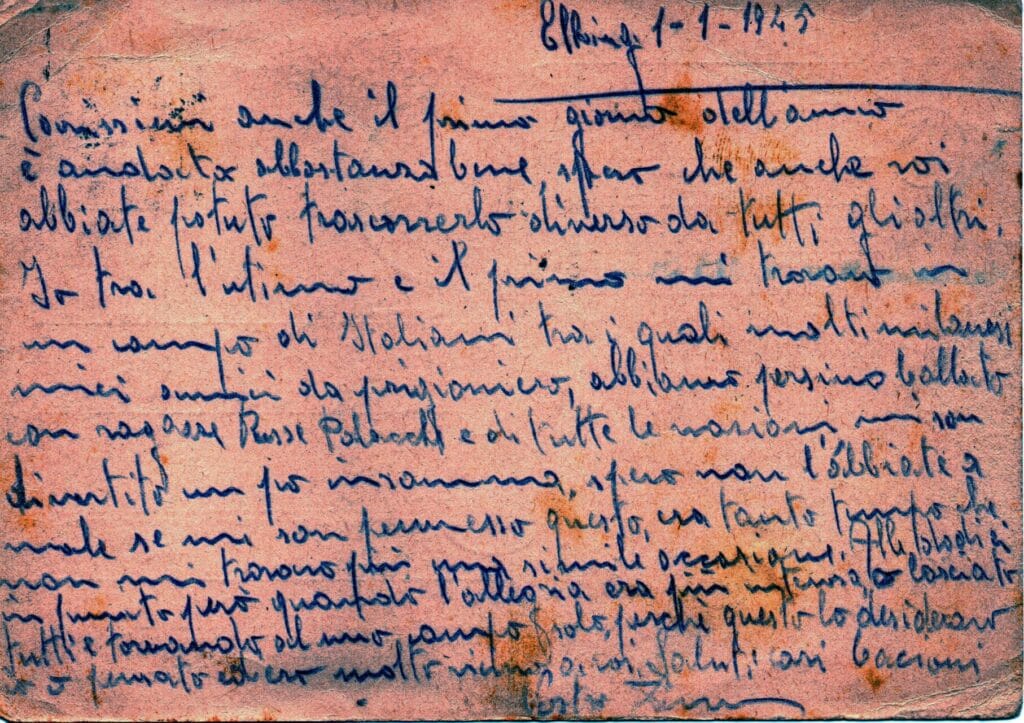 Elbing 1-1-1945
Carissimi anche il primo giorno dell'anno
è andato abbastanza bene, spero che anche voi
abbiate potuto trascorrerlo diverso da tutti gli altri.
Io tra l'utimo e il primo mi trovavo in
un campo di Italiani tra i quali molti milanesi
miei amici da prigioniero, abbiamo persino ballato
con ragasse Russe Polacche e di tutte le nasioni, mi son
divertito un po insomma, spero non l'abbiate a
male se mi son permesso questo, era tanto tempo che
non mi trovavo più in simile occasione. Alle dodici
in punto però quando l'allegria era più intensa o lasciato
tutti e tornando al mio campo solo, perchè questo lo desideravo
o pensato ed ero molto vicino a voi. Saluti cari bacioni
Vostro